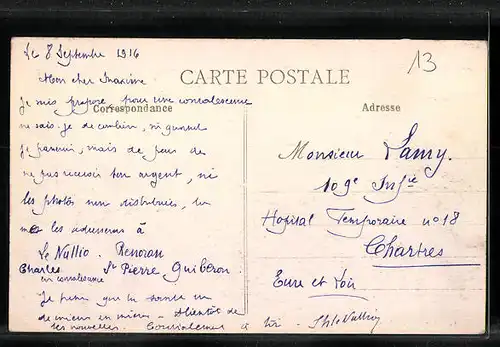 Le 8 Septembre 1916
13
Mon cher Maxime
CARTE POSTALE
Je suis proposé pour une convalescence
Correspondance
Adresse
ne sais-je de combien, ni quand
je partirai, mais de peur de
ne pas recevoir ton argent, ni
les photos non distribuées, tu
me les adresseras à
Le Nullio. Renoran
Charles St Pierre Quiberon.
en convalescence
Je pense que ta santé va
de mieux en mieux - A bientôt de
tes nouvelles. Cordialement à toi
Monsieur Lamy.
109e Inf.ie
Hopital Temporaire n° 18
Chartres
Eure et Loir